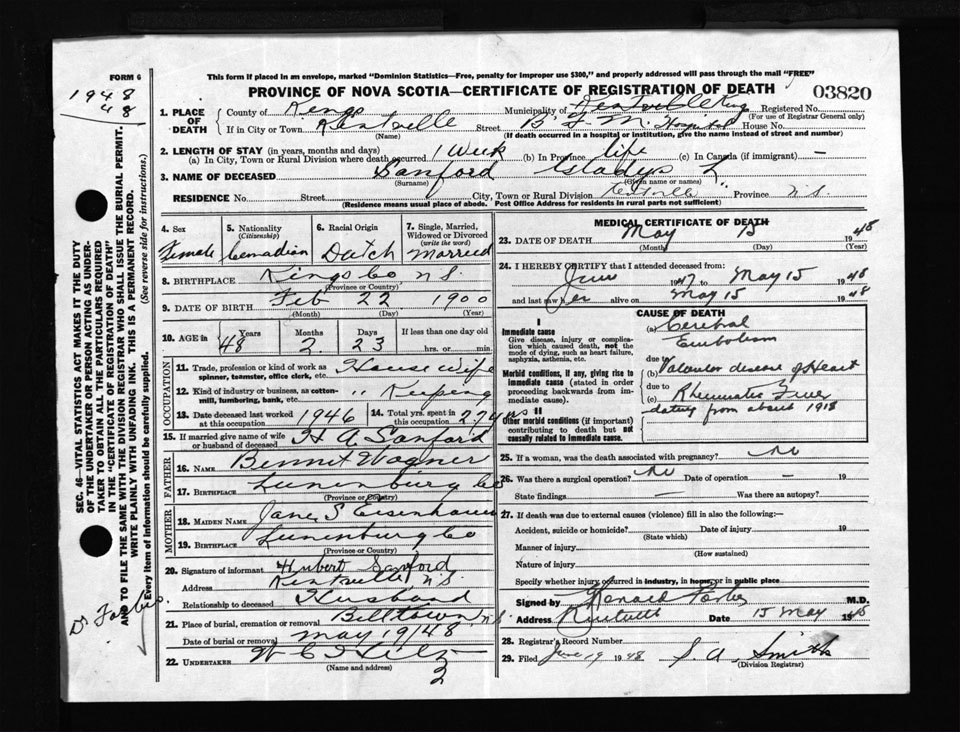 FORM 6
1948
48
This form if placed in an envelope, marked "Dominion Statistics—Free, penalty for improper use $300," and properly addressed will pass through the mail "FREE"
PROVINCE OF NOVA SCOTIA—CERTIFICATE OF REGISTRATION OF DEATH
03820
1. PLACE OF DEATH
County of Kings Municipality of Kentville Kings Registered No.
(For use of Registrar General only)
If in City or Town Kentville Street B. F. M. Hospital House No.
(Name) (If death occurred in a hospital or institution, give the name instead of street and number)
2. LENGTH OF STAY (in years, months and days)
(a) In City, Town or Rural Division where death occurred 1 Week (b) In Province life (c) In Canada (if immigrant) —
3. NAME OF DECEASED Sanford Gladys L.
(Surname) (Given name or names)
RESIDENCE No. Street City, Town or Rural Division Kentville Province N.S.
(Residence means usual place of abode. Post Office Address for residents in rural parts not sufficient)
4. Sex Female
5. Nationality (Citizenship) Canadian
6. Racial Origin Dutch
7. Single, Married, Widowed or Divorced (write the word) Married
8. BIRTHPLACE Kings Co N.S.
(Province or Country)
9. DATE OF BIRTH Feb 22 1900
(Month) (Day) (Year)
10. AGE in 48 Years 2 Months 23 Days If less than one day old hrs. or min.
OCCUPATION
11. Trade, profession or kind of work as spinner, teamster, office clerk, etc. House Wife
12. Kind of industry or business, as cotton-mill, lumbering, bank, etc. " Keeping
13. Date deceased last worked at this occupation 1946
14. Total yrs. spent in this occupation 27 yrs
15. If married give name of wife or husband of deceased H A Sanford
FATHER
16. NAME Bennet Wagner
17. BIRTHPLACE Lunenburg Co
(Province or Country)
MOTHER
18. MAIDEN NAME Jane S Eisenhauer
19. BIRTHPLACE Lunenburg Co
(Province or Country)
20. Signature of informant Hubert Sanford
Address Kentville N.S.
Relationship to deceased Husband
21. Place of burial, cremation or removal Billtown N.S.
Date of burial or removal May 19/48
22. UNDERTAKER
(Name and address)
3
MEDICAL CERTIFICATE OF DEATH
23. DATE OF DEATH May 15 1948
(Month) (Day)
24. I HEREBY CERTIFY that I attended deceased from:
June 1947 to May 15 1948
and last saw her alive on May 15 1948
CAUSE OF DEATH
I
Immediate cause
Give disease, injury or complication which caused death, not the mode of dying, such as heart failure, asphyxia, asthenia, etc.
(a) Cerebral Embolism
due to
Morbid conditions, if any, giving rise to immediate cause (stated in order proceeding backwards from immediate cause).
(b) Valvular disease of Heart
due to
(c) Rheumatic Fever
dating from about 1918
II
Other morbid conditions (if important) contributing to death but not causally related to immediate cause.
25. If a woman, was the death associated with pregnancy? No
26. Was there a surgical operation? No Date of operation — 19
State findings — Was there an autopsy?
27. If death was due to external causes (violence) fill in also the following:—
Accident, suicide or homicide? Date of injury 19
(State which)
Manner of injury
(How sustained)
Nature of injury
Specify whether injury occurred in industry, in home, or in public place
Signed by M.D.
Address Kentville Date 15 May 1948
28. Registrar's Record Number
29. Filed June 19 1948 J. A. Smith
(Division Registrar)
SEC. 46—VITAL STATISTICS ACT MAKES IT THE DUTY
OF THE UNDERTAKER OR PERSON ACTING AS UNDER-
TAKER TO OBTAIN ALL THE PARTICULARS REQUIRED
IN THE "CERTIFICATE OF REGISTRATION OF DEATH"
AND TO FILE THE SAME WITH THE DIVISION REGISTRAR WHO SHALL ISSUE THE BURIAL PERMIT.
WRITE PLAINLY WITH UNFADING INK. THIS IS A PERMANENT RECORD.
Every item of information should be carefully supplied. (See reverse side for instructions.)
Dr Forbes